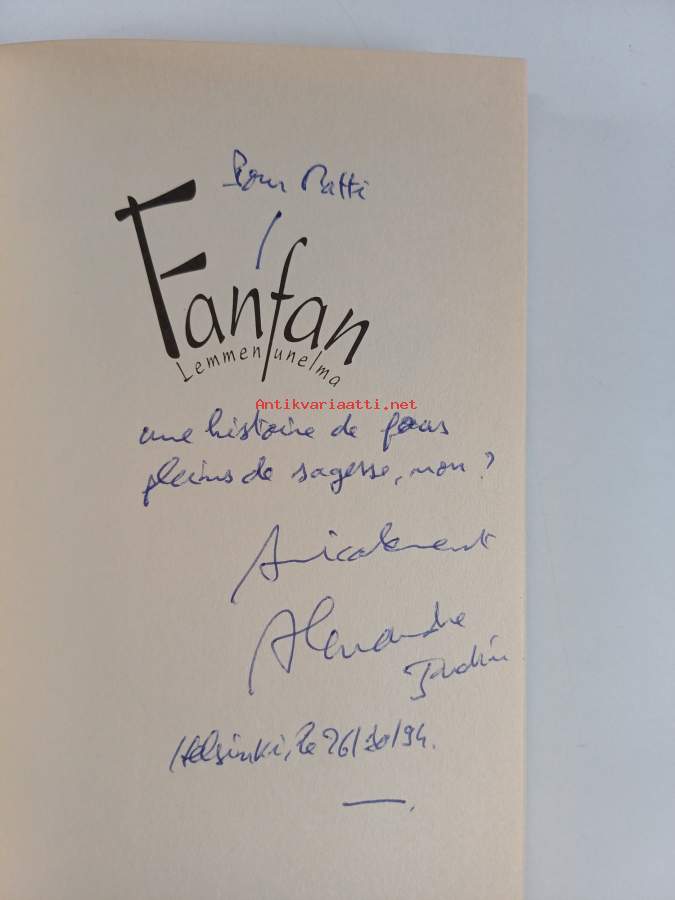 Pour Matti
Fanfan
Lemmen unelma
Antikvariaatti.net
une histoire de fous
pleins de sagesse, non ?
Amicalement
Alexandre
Jardin
Helsinki, le 26/10/94.